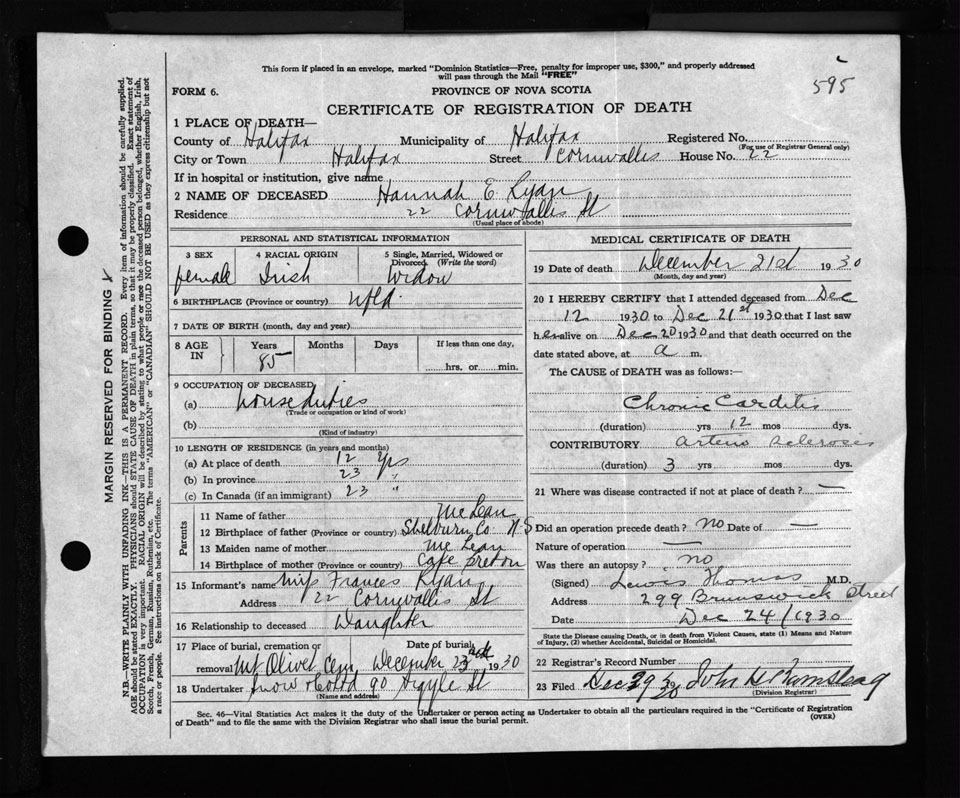 595
This form if placed in an envelope, marked "Dominion Statistics—Free, penalty for improper use, $300," and properly addressed
will pass through the Mail "FREE"
FORM 6.
PROVINCE OF NOVA SCOTIA
CERTIFICATE OF REGISTRATION OF DEATH
1 PLACE OF DEATH—
County of Halifax Municipality of Halifax Registered No.
(For use of Registrar General only)
City or Town Halifax Street Cornwallis House No. 22
If in hospital or institution, give name
2 NAME OF DECEASED Hannah E Ryan
Residence 22 Cornwallis St
(Usual place of abode)
PERSONAL AND STATISTICAL INFORMATION
3 SEX 4 RACIAL ORIGIN 5 Single, Married, Widowed or
Divorced. (Write the word)
female Irish Widow
6 BIRTHPLACE (Province or country) Nfld.
7 DATE OF BIRTH (month, day and year)
8 AGE IN Years Months Days If less than one day,
85 hrs. or min.
9 OCCUPATION OF DECEASED
(a) house duties
(Trade or occupation or kind of work)
(b)
(Kind of industry)
10 LENGTH OF RESIDENCE (in years and months)
(a) At place of death 12 Yrs
(b) In province 23 "
(c) In Canada (if an immigrant) 23 "
Parents
11 Name of father McLean
12 Birthplace of father (Province or country) Shelburn Co N S
13 Maiden name of mother McLean
14 Birthplace of mother (Province or country) Cape Breton
15 Informant's name Miss Frances Ryan
Address 22 Cornwallis St
16 Relationship to deceased Daughter
17 Place of burial, cremation or Date of burial
removal Mt Olivet Cem December 23 1930
18 Undertaker Snow & Co Ltd 90 Argyle St
(Name and address)
MEDICAL CERTIFICATE OF DEATH
19 Date of death December 21st 1930
(Month, day and year)
20 I HEREBY CERTIFY that I attended deceased from Dec
12 1930 to Dec 21st 1930 that I last saw
her alive on Dec 20 1930 and that death occurred on the
date stated above, at a m.
The CAUSE of DEATH was as follows:—
Chronic Carditis
(duration) yrs 12 mos dys.
CONTRIBUTORY arterio sclerosis
(duration) 3 yrs mos dys.
21 Where was disease contracted if not at place of death? —
Did an operation precede death? no Date of —
Nature of operation —
Was there an autopsy? no
(Signed) Lewis Thomas M.D.
Address 299 Brunswick Street
Date Dec 24/1930
State the Disease causing Death, or in death from Violent Causes, state (1) Means and Nature
of Injury, (2) whether Accidental, Suicidal or Homicidal.
22 Registrar's Record Number
23 Filed Dec 29 30 John H
(Division Registrar)
Sec. 46—Vital Statistics Act makes it the duty of the Undertaker or person acting as Undertaker to obtain all the particulars required in the "Certificate of Registration
of Death" and to file the same with the Division Registrar who shall issue the burial permit.
(OVER)
MARGIN RESERVED FOR BINDING
N.B.—WRITE PLAINLY WITH UNFADING INK—THIS IS A PERMANENT RECORD. Every item of information should be carefully supplied.
AGE should be stated EXACTLY. PHYSICIANS should STATE CAUSE OF DEATH in plain terms, so that it may be properly classified. Exact statement of
OCCUPATION is very important. RACIAL ORIGIN will be described by stating to what people or race the deceased person belonged, whether English, Irish,
Scotch, French, German, Russian, Ruthenian, etc. The terms "AMERICAN" or "CANADIAN" SHOULD NOT BE USED as they express citizenship but not
a race or people. See instructions on back of Certificate.